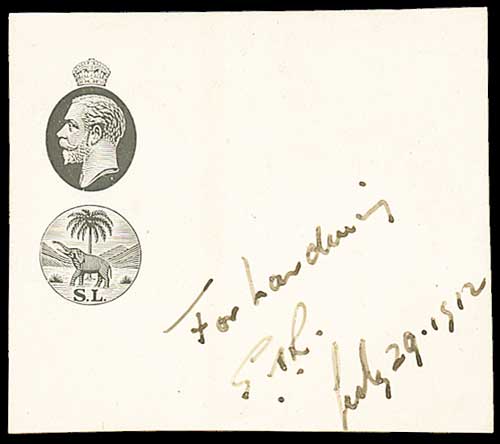 S.L.
For hardening
July 29. 1912